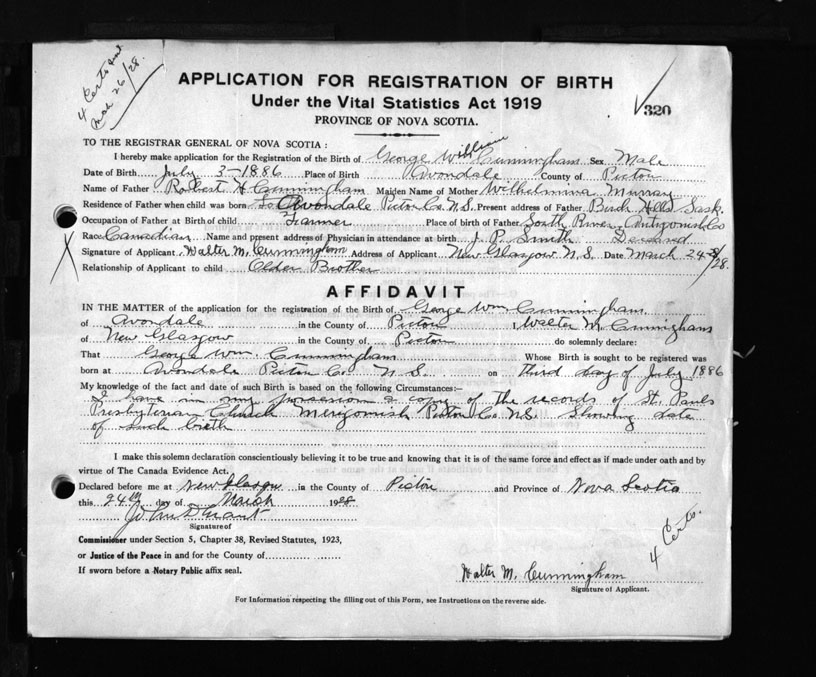 4 Certs sent
Mar 26/28.
APPLICATION FOR REGISTRATION OF BIRTH
Under the Vital Statistics Act 1919
PROVINCE OF NOVA SCOTIA.
320
TO THE REGISTRAR GENERAL OF NOVA SCOTIA :
I hereby make application for the Registration of the Birth of George William Cunningham Sex Male
Date of Birth July 3-1886 Place of Birth Avondale County of Pictou
Name of Father Robert H Cunningham Maiden Name of Mother Wilhelmina Murray
Residence of Father when child was born Avondale Pictou Co. N.S. Present address of Father Birch Hills Sask.
Occupation of Father at Birth of child Farmer Place of birth of Father South River Antigonish Co
Race Canadian Name and present address of Physician in attendance at birth J. P. Smith
Signature of Applicant Walter M. Cunningham Address of Applicant New Glasgow N.S. Date March 24 /28.
Relationship of Applicant to child Older Brother
AFFIDAVIT
IN THE MATTER of the application for the registration of the Birth of George Wm Cunningham
of Avondale in the County of Pictou I, Walter M Cunningham
of New Glasgow in the County of Pictou do solemnly declare:
That George Wm. Cunningham Whose Birth is sought to be registered was
born at Avondale Pictou Co N.S. on third day of July 1886
My knowledge of the fact and date of such Birth is based on the following Circumstances:—
I have in my possession a copy of the records of St. Pauls
Presbyterian Church Merigomish Pictou Co. N.S. Showing date
of such birth
I make this solemn declaration conscientiously believing it to be true and knowing that it is of the same force and effect as if made under oath and by
virtue of The Canada Evidence Act.
Declared before me at New Glasgow in the County of Pictou and Province of Nova Scotia
this 24th day of March 1928
Signature of
Commissioner under Section 5, Chapter 38, Revised Statutes, 1923,
or Justice of the Peace in and for the County of
If sworn before a Notary Public affix seal.
4 Certs.
Walter M. Cunningham
Signature of Applicant.
For Information respecting the filling out of this Form, see Instructions on the reverse side.